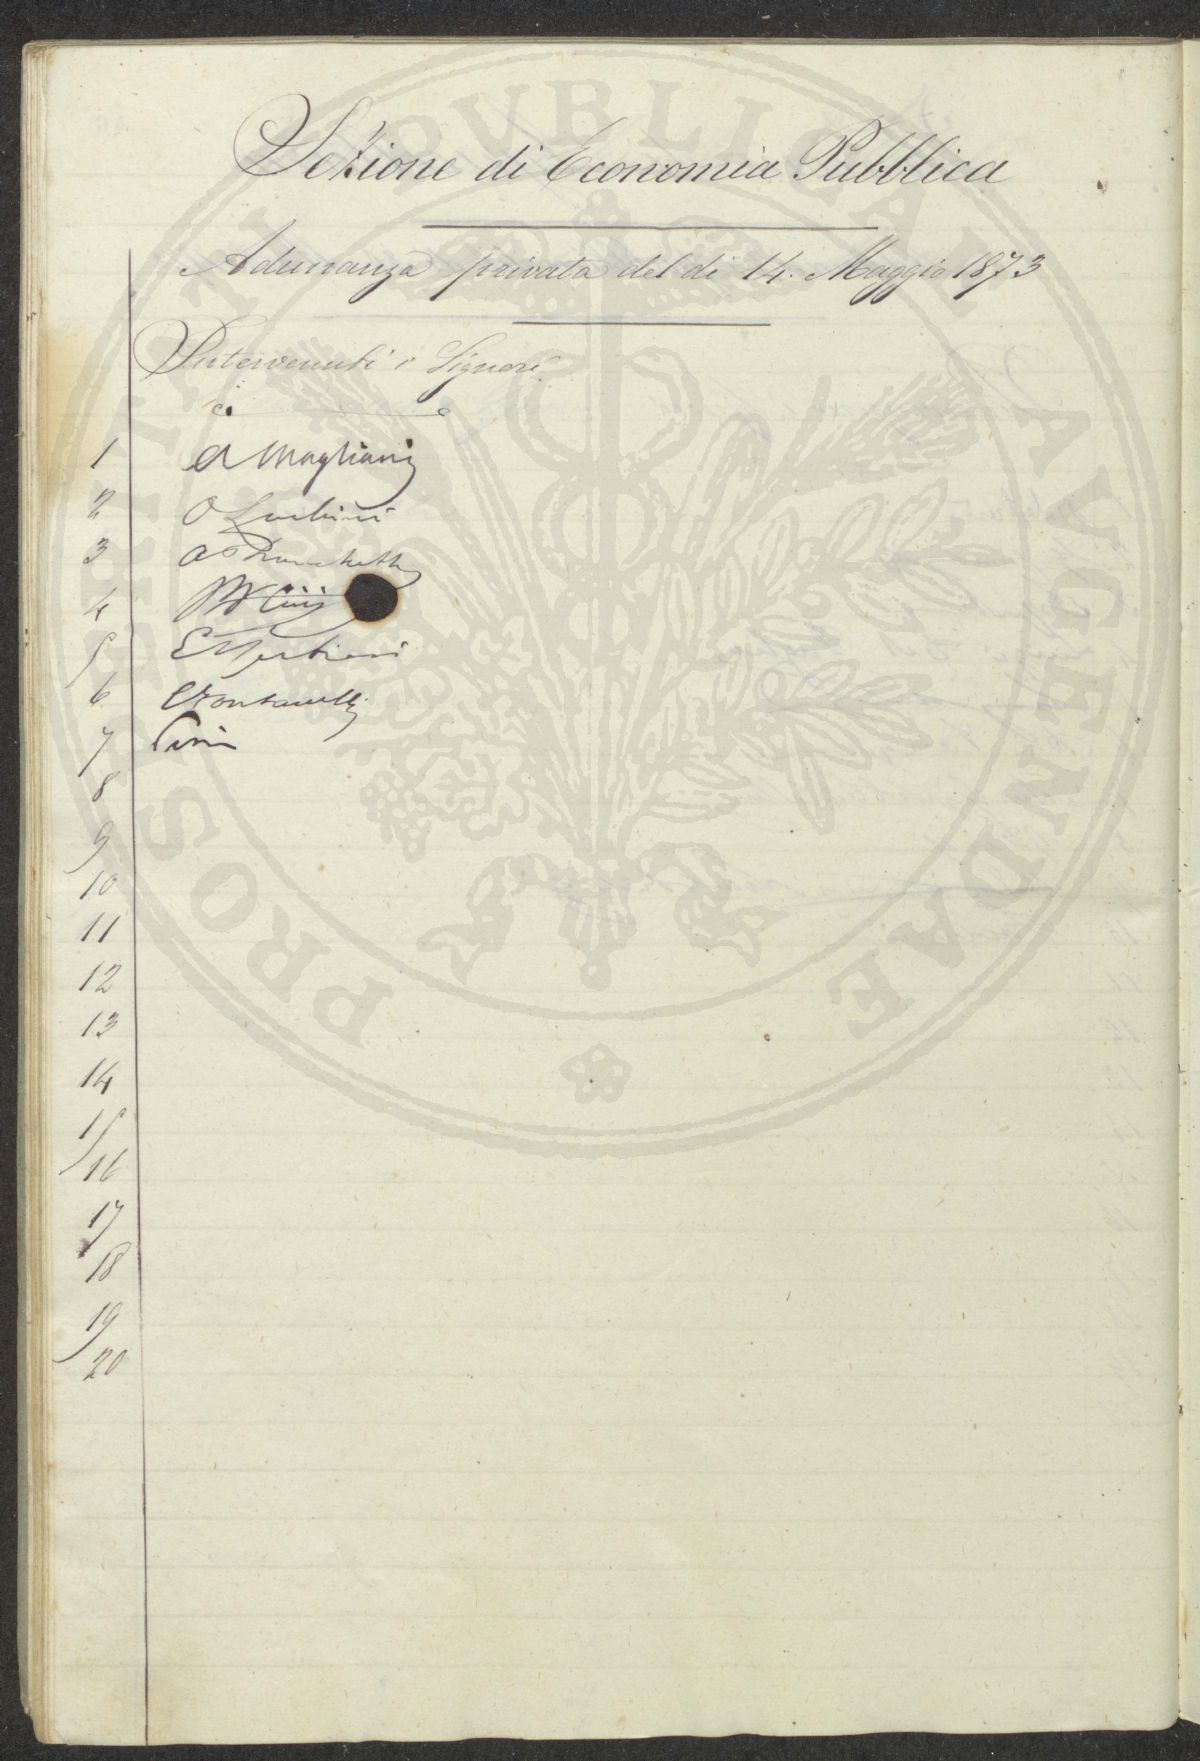 Sezione di Economia Pubblica
Adunanza privata del di 14. Maggio 1873
Intervenuti i Signori
1 A Magliani
2 O Luchini
3 A Franchetti
4
5
6 C Fontanelli
7
8
9
10
11
12
13
14
15
16
17
18
19
20
PROSPERITATI PUBLICAE AUGENDAE